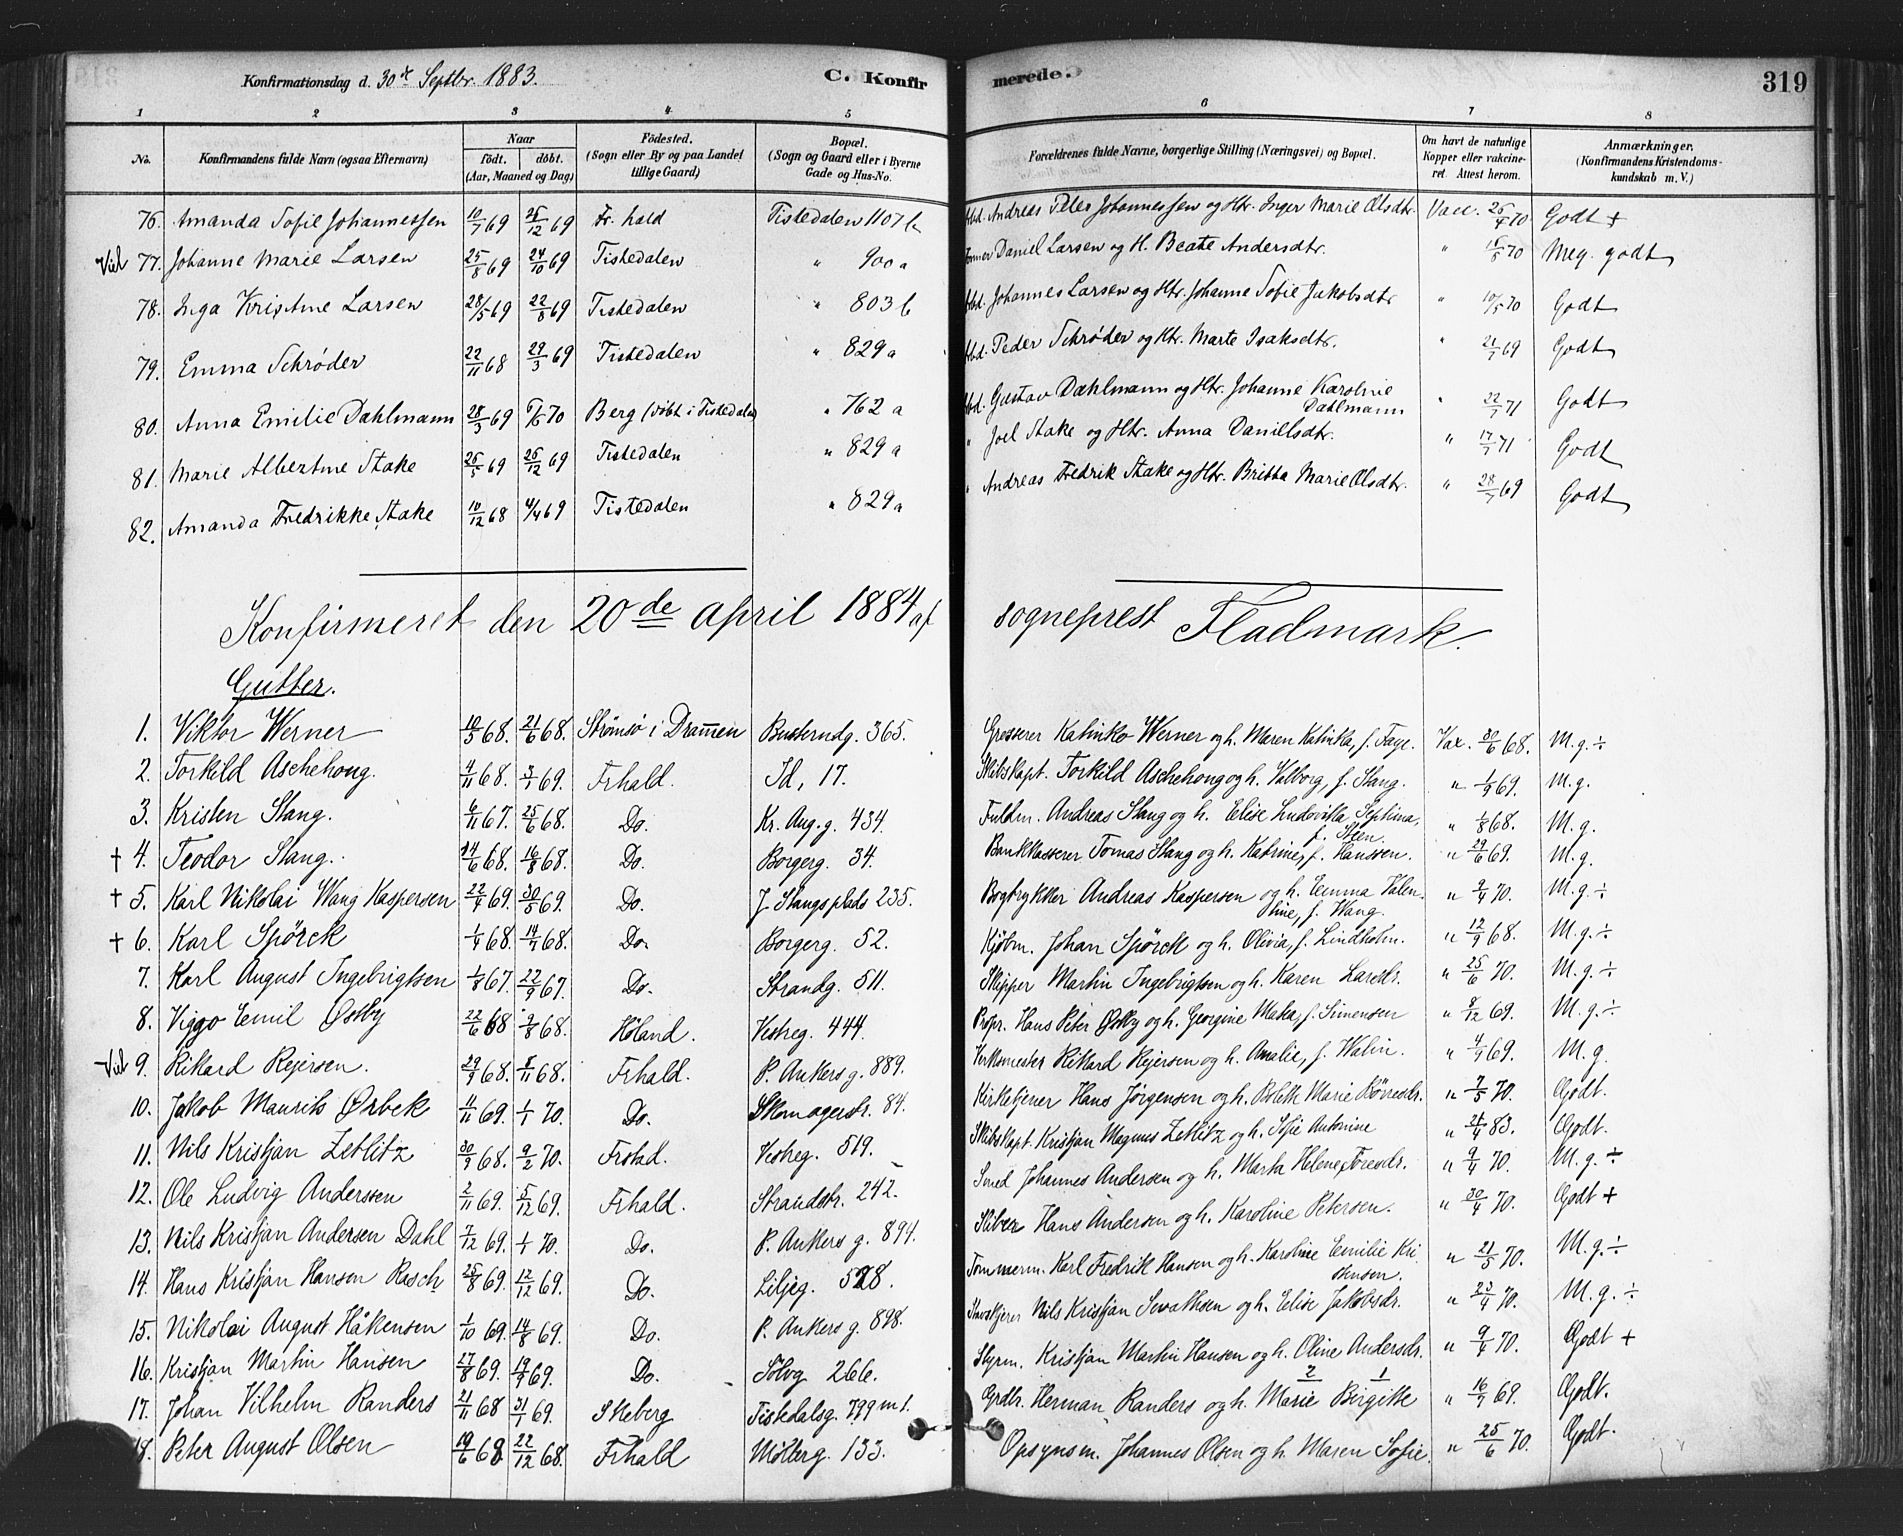 Konfirmationsdag d. 30te Septbr. 1883. C. Konfirmerede. 319
1 2 3 4 5 6 7 8
No. Konfirmandens fulde Navn (ogsaa Efternavn) Naar født. døbt. (Aar, Maaned og Dag) Fødested. (Sogn eller By og paa Landet tillige Gaard) Bopæl. (Sogn og Gaard eller i Byerne Gade og Hus-No. Forældrenes fulde Navne, borgerlige Stilling (Næringsvei) og Bopæl. Om havt de naturlige Kopper eller vakcineret. Attest herom. Anmærkninger. (Konfirmandens Kristendomskundskab m. V.)
76. Amanda Sofie Johannessen 10/7 69 26/12 69 Fr. hald Tistedalen 1107 b Arbd. Andreas Peter Johannessen og Htr. Inger Marie Olsdtr. Vacc. 26/4 70 Godt +
77. Johanne Marie Larsen 25/8 69 24/10 69 Tistedalen " 900 a Daniel Larsen og H. Beate Andersdtr. " 70 Meg. godt
78. Inga Kristine Larsen 28/5 69 22/8 69 Tistedalen " 803 b Arbd. Johannes Larsen og Htr. Johanne Sofie Jakobsdtr " 10/5 70 Godt
79. Emma Schrøder 22/11 68 29/3 69 Tistedalen " 829 a Arbd. Peder Schrøder og Htr. Marte Isaksdtr. " 21/7 69 Godt
80. Anna Emilie Dahlmann 28/3 69 70 Berg (døbt i Tistedalen) " 762 a Arbd. Gustav Dahlmann og Htr. Johanne Karoline Dahlmann " 22/7 71 Godt
81. Marie Albertine Stake 26/5 69 26/12 69 Tistedalen " 829 a " Joel Stake og Htr. Anna Danielsdtr. " 17/7 71 Godt
82. Amanda Fredrikke Stake 10/12 68 4/4 69 Tistedalen " 829 a " Andreas Fredrik Stake og Htr. Britta Marie Olsdtr. " 28/7 69 Godt
Konfirmeret den 20de april 1884 af sogneprest Fladmark.
Gutter.
1. Viktor Werner 10/5 68. 21/6 68. Strømsø i Drammen Busterudg. 365. Grosserer Katinko Werner og h. Maren Katinka, f. Faye. Vax. 30/6 68. M. g. ÷
2. Torkild Aschehoug. 4/11 68. 3/1 69. Frhald. Id, 17. Skibskapt. Torkild Aschehoug og h. Valborg, f. Stang. " 1/5 69. M. g.
3. Kristen Stang. 6/11 67. 25/6 68. Do. Kr. Aug. g. 434. Fuldm. Andreas Stang og h. Elise Ludovika Septima, f. Steen. " 1/8 68. M. g.
† 4. Teodor Stang. 14/6 68. 16/8 68. Do. Borgerg. 34. Bankkasserer Tomas Stang og h. Katrine, f. Hanssen. " 29/6 69. M. g.
† 5. Karl Nikolai Wang Kaspersen 22/4 69. 30/5 69. Do. J. Stangsplads 235. Bogtrykker Andreas Kaspersen og h. Emma Valentine, f. Wang. " 9/4 70. M. g. ÷
† 6. Karl Spørck 1/4 68. 14/7 68. Do. Borgerg. 52. Kjøbm. Johan Spørck og h. Olivia, f. Lindholm. " 12/9 68. M. g. ÷
7. Karl August Ingebrigtsen 1/8 67. 22/9 67. Do. Strandg. 511. Skipper Martin Ingebrigtsen og h. Karen Larsdr. " 25/6 70. M. g. ÷
8. Viggo Emil Østby 22/6 68. 9/8 68. Høland. Vestreg. 444. Propr. Hans Peter Østby og h. Georgine f. Simensen " 8/12 69. M. g. ÷
9. Rikard Rejersen. 29/9 68. 68. Frhald. P. Ankers g. 889. Verksmester Rikard Rejersen og h. Amalie, f. Walin. " 4/9 69. M. g.
10. Jakob Maurits Ørbek 11/11 69. 1/1 70. Do. Skomagerstr. 84. Kirketjener Hans Jørgensen og h. Bolette Marie Børresdr. " 7/5 70. Godt.
11. Nils Kristjan Zetlitz 30/9 68. 9/2 70. Frstad. Vestreg. 519. Skibskapt. Kristjan Magnus Zetlitz og h. Sofie Antonine " 21/4 83. Godt.
12. Ole Ludvig Andersen 2/11 69. 5/12 69. Frhald. Strandstr. 242. Smed Johannes Andersen og h. Marta Helene Toresdr. " 9/4 70. M. g. ÷
13. Nils Kristjan Andersen Dahl 7/12 69. 1/1 70. Do. P. Ankers g. 894. Hans Andersen og h. Karoline Petersen. " 30/4 70. Godt +
14. Hans Kristjan Hansen Rasch 25/8 69. 12/12 69. Do. Liljeg. 528. Tømmerm. Karl Fredrik Hansen og h. Karoline Emilie Kristensen. " 21/5 70. M. g. ÷
15. Nikolai August Håkensen 1/10 69. 14/8 69. Do. P. Ankers g. 898. Nils Kristjan og h. Elise Jakobsdr. " 23/4 70. M. g. ÷
16. Kristjan Martin Hansen 27/8 69. 19/9 69. Do. Sølvg 266. Styrm. Kristjan Martin Hansen og h. Oline Andersdr. " 9/4 70. Godt +
17. Johan Vilhelm Randers 21/11 68 31/1 69. Skeberg Tistedalsg. 799 m 1. Grdbr. Herman Randers og h. Marie Birgitte " 16/7 69. Godt.
18. Peter August Olsen 19/6 68 22/12 68. Frhald Mølberg. 133. Opsynsm. Johannes Olsen og h. Maren Sofie. " 25/6 70. Godt.